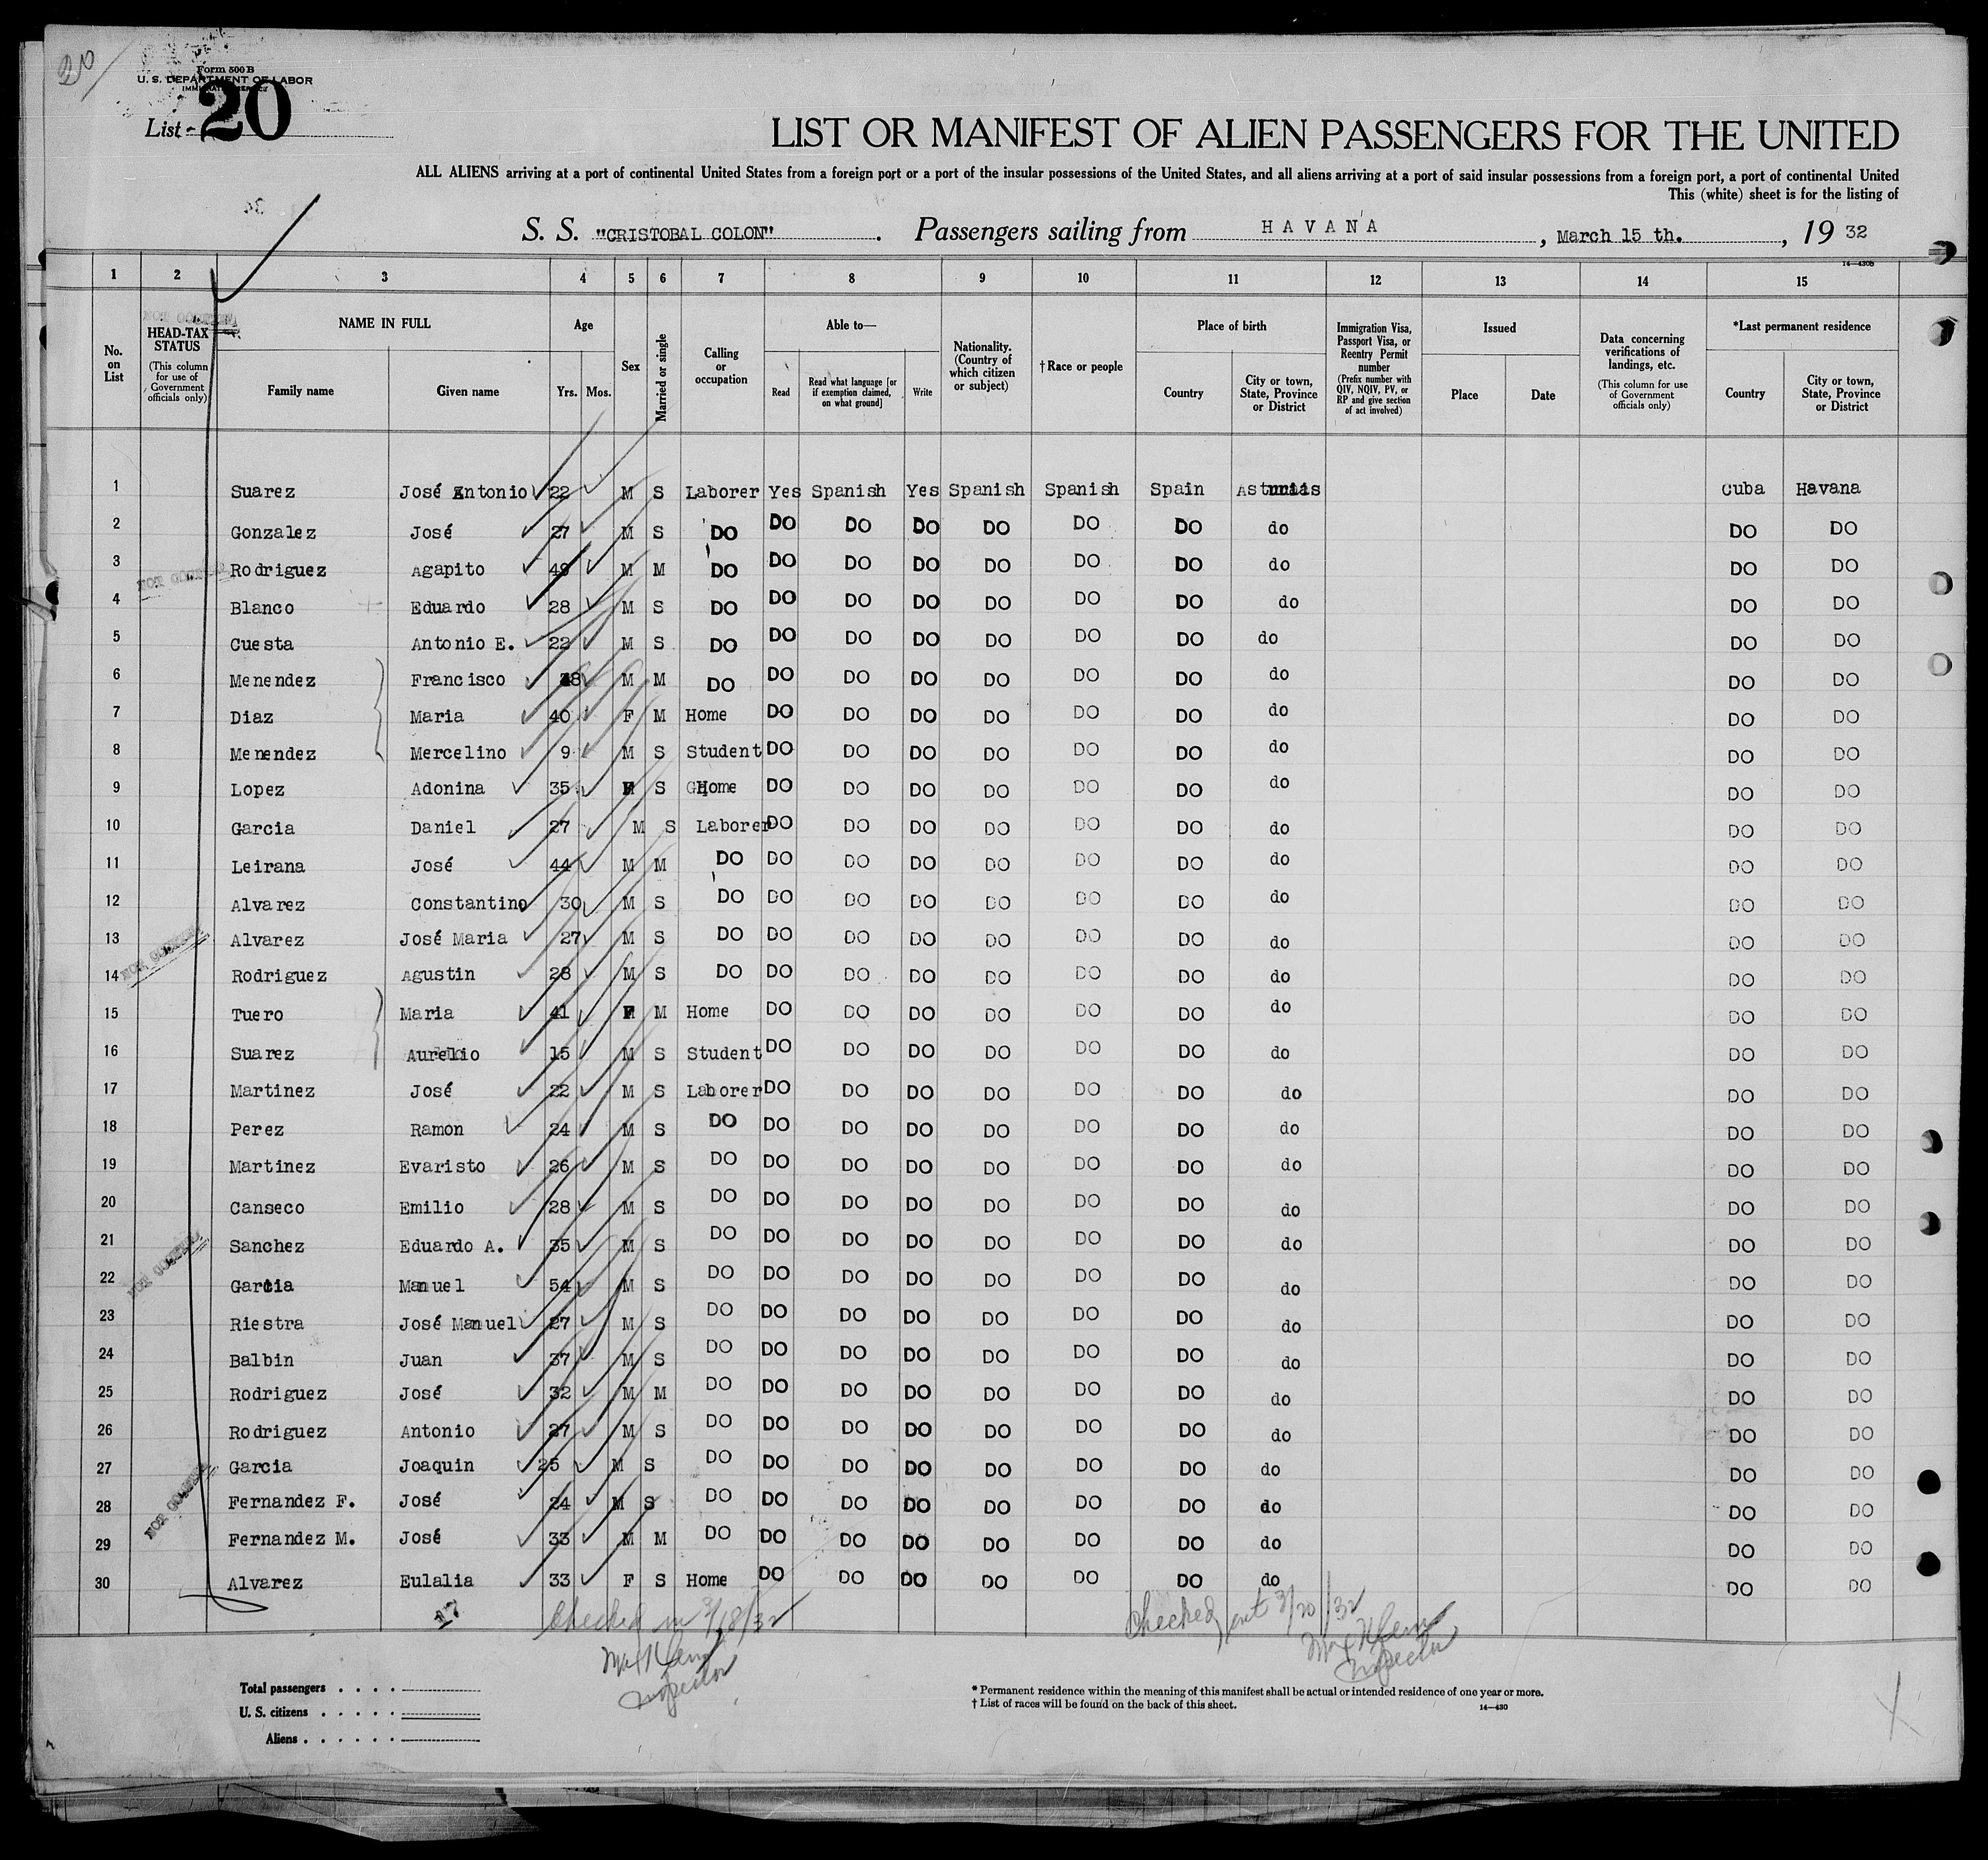 20
Form 500 B
U. S. DEPARTMENT OF LABOR
List 20
LIST OR MANIFEST OF ALIEN PASSENGERS FOR THE UNITED
ALL ALIENS arriving at a port of continental United States from a foreign port or a port of the insular possessions of the United States, and all aliens arriving at a port of said insular possessions from a foreign port, a port of continental United
This (white) sheet is for the listing of
S. S. "CRISTOBAL COLON". Passengers sailing from HAVANA, March 15 th., 19 32
14—430B
1 2 3 4 5 6 7 8 9 10 11 12 13 14 15
No. on List
HEAD-TAX STATUS (This column for use of Government officials only)
NAME IN FULL Family name Given name
Age Yrs. Mos.
Sex
Married or single
Calling or occupation
Able to— Read Read what language [or if exemption claimed, on what ground] Write
Nationality. (Country of which citizen or subject)
†Race or people
Place of birth Country City or town, State, Province or District
Immigration Visa, Passport Visa, or Reentry Permit number (Prefix number with QIV, NQIV, PV, or RP and give section of act involved)
Issued Place Date
Data concerning verifications of landings, etc. (This column for use of Government officials only)
*Last permanent residence Country City or town, State, Province or District
1 Suarez José Antonio 22 M S Laborer Yes Spanish Yes Spanish Spanish Spain Asturias Cuba Havana
2 Gonzalez José 27 M S DO DO DO DO DO DO DO do DO DO
3 Rodriguez Agapito 49 M M DO DO DO DO DO DO DO do DO DO
4 Blanco Eduardo 28 M S DO DO DO DO DO DO DO do DO DO
5 Cuesta Antonio E. 22 M S DO DO DO DO DO DO DO do DO DO
6 Menendez Francisco 38 M M DO DO DO DO DO DO DO do DO DO
7 Diaz Maria 40 F M Home DO DO DO DO DO DO do DO DO
8 Menendez Mercelino 9 M S Student DO DO DO DO DO DO do DO DO
9 Lopez Adonina 35 F S Home DO DO DO DO DO DO do DO DO
10 Garcia Daniel 27 M S Laborer DO DO DO DO DO DO do DO DO
11 Leirana José 44 M M DO DO DO DO DO DO DO do DO DO
12 Alvarez Constantino 30 M S DO DO DO DO DO DO DO do DO DO
13 Alvarez José Maria 27 M S DO DO DO DO DO DO DO do DO DO
14 Rodriguez Agustin 28 M S DO DO DO DO DO DO DO do DO DO
15 Tuero Maria 41 F M Home DO DO DO DO DO DO do DO DO
16 Suarez Aurelio 15 M S Student DO DO DO DO DO DO do DO DO
17 Martinez José 22 M S Laborer DO DO DO DO DO DO do DO DO
18 Perez Ramon 24 M S DO DO DO DO DO DO DO do DO DO
19 Martinez Evaristo 26 M S DO DO DO DO DO DO DO do DO DO
20 Canseco Emilio 28 M S DO DO DO DO DO DO DO do DO DO
21 Sanchez Eduardo A. 35 M S DO DO DO DO DO DO DO do DO DO
22 Garcia Manuel 54 M S DO DO DO DO DO DO DO do DO DO
23 Riestra José Manuel 27 M S DO DO DO DO DO DO DO do DO DO
24 Balbin Juan 37 M S DO DO DO DO DO DO DO do DO DO
25 Rodriguez José 32 M M DO DO DO DO DO DO DO do DO DO
26 Rodriguez Antonio 27 M S DO DO DO DO DO DO DO do DO DO
27 Garcia Joaquin 25 M S DO DO DO DO DO DO DO do DO DO
28 Fernandez F. José 24 M S DO DO DO DO DO DO DO do DO DO
29 Fernandez M. José 33 M M DO DO DO DO DO DO DO do DO DO
30 Alvarez Eulalia 33 F S Home DO DO DO DO DO DO do DO DO
17 Checked in 3/18/32 Checked out 3/20/32
Inspector Inspector
Total passengers
U. S. citizens
Aliens
* Permanent residence within the meaning of this manifest shall be actual or intended residence of one year or more.
† List of races will be found on the back of this sheet.
14—430